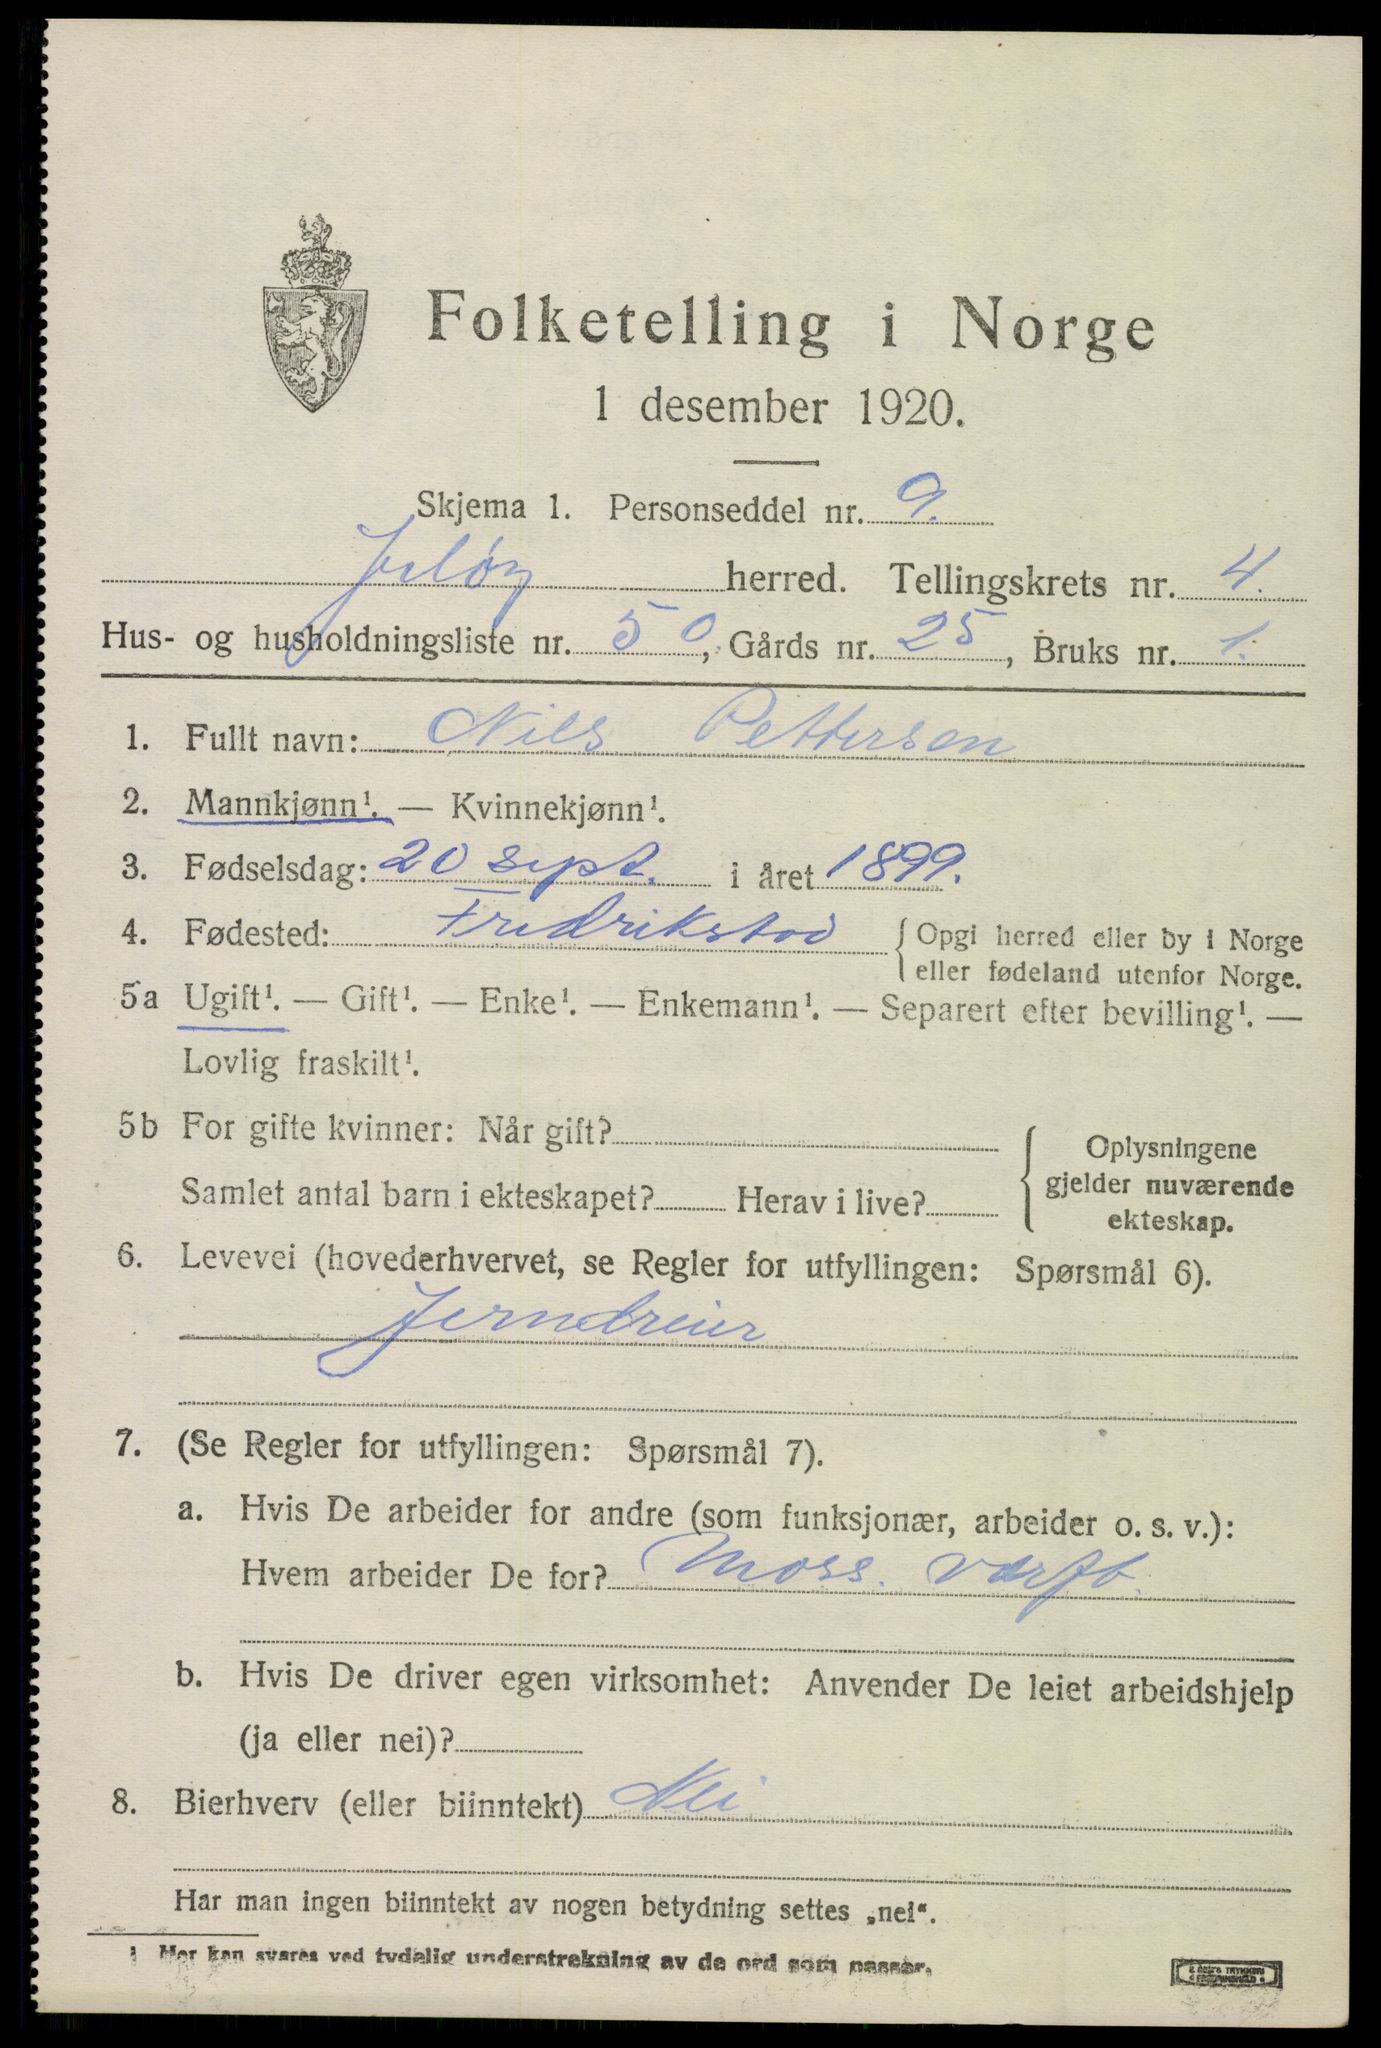 Folketelling i Norge
1 desember 1920.
Skjema 1. Personseddel nr. 9.
Jeløy herred. Tellingskrets nr. 4.
Hus- og husholdningsliste nr. 50, Gårds nr. 25, Bruks nr. 1.
1. Fullt navn: Nils Pettersen
2. Mannkjønn¹. — Kvinnekjønn¹.
3. Fødselsdag: 20 sept. i året 1899.
4. Fødested: Fredrikstad { Opgi herred eller by i Norge
eller fødeland utenfor Norge.
5a Ugift¹. — Gift¹. — Enke¹. — Enkemann¹. — Separert efter bevilling¹. —
Lovlig fraskilt¹.
5b For gifte kvinner: Når gift?
Samlet antal barn i ekteskapet? Herav i live?
{ Oplysningene
gjelder nuværende
ekteskap.
6. Levevei (hovederhvervet, se Regler for utfyllingen: Spørsmål 6).
Jerndreier
7. (Se Regler for utfyllingen: Spørsmål 7).
a. Hvis De arbeider for andre (som funksjonær, arbeider o. s. v.):
Hvem arbeider De for? Moss. Værft.
b. Hvis De driver egen virksomhet: Anvender De leiet arbeidshjelp
(ja eller nei)?
8. Bierhverv (eller biinntekt) Nei
Har man ingen biinntekt av nogen betydning settes „nei“.
1 Her kan svares ved tydelig understrekning av de ord som passer.